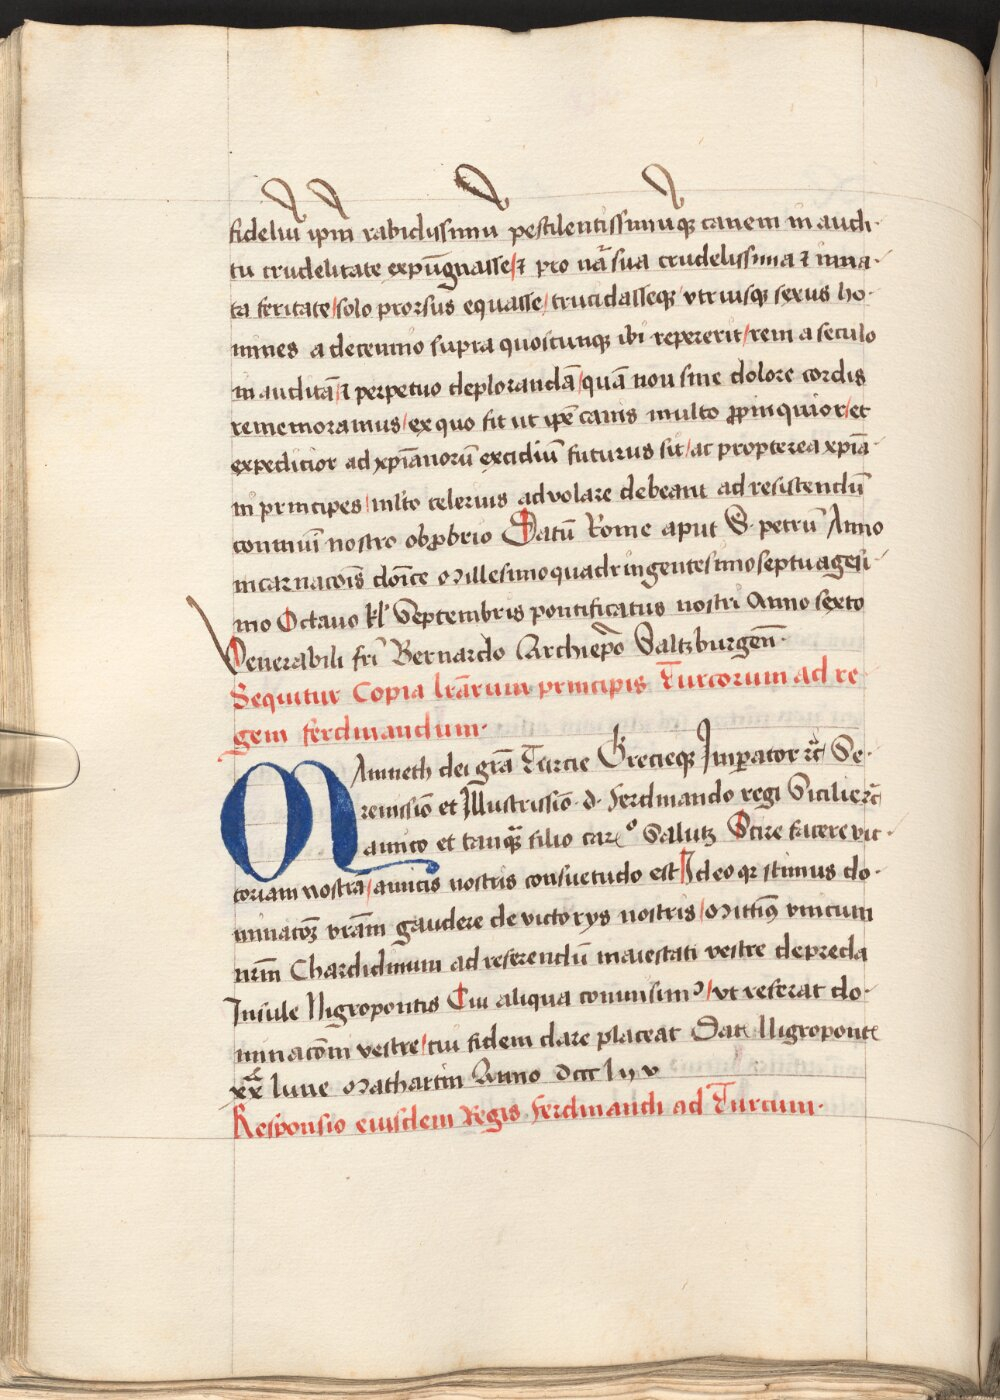 fideliū ip̄m rabidissimū pestilentissimūqꝫ canem in audi-
tu crudelitate expūgnasse/ ⁊ pro nr̄a sua crudelissima ⁊ inna-
ta feritate/ solo prorsus equasse/ trucidasseqꝫ/ vtriusqꝫ sexus ho-
mines a decennio supra quoscunqꝫ ibi repererit/ rem a seculo
in auditā/ ⁊ perpetuo deplorandā/ quā non sine dolore cordis
rememoramus/ ex quo fit ut ip̄e canis multo ꝓpinquior/ et
expedicior ad xp̄ianorū excidiū futurus sit/ ac propterea xp̄ia-
ni principes/ mlto celerius advolare debeant ad resistendū
communi nostro obꝓbrio Datū Rome aput S. petrū Anno
incarnacōis dn̄ice Millesimoquadringentesimoseptuagesi-
mo Octauo kl' Septembris pontificatus nostri Anno sexto
Venerabili fr̄i Bernardo Archiep̄o Saltzburgen̄
Sequitur Copia lr̄arum principis Turcorum ad re-
gem ferdinandum.
MAmneth dei gr̄a Turcie Grecieqꝫ Imꝑator ⁊c̄ Se-
renissīo et Illustrissīo d. Ferdinando regi Sicilie ⁊c̄
amico et tanqꝫ filio car̄o Salutꝫ Scire facere vic-
toriam nostrā/ amicis nostris consuetudo est Ideo qꝛ scimus do-
minacōꝫ vr̄am gaudere de victorys nostris/ Mittimꝰ vnicum
nrm̄ Chardidinum ad referendū maiestati vestre de preda
Insule Nigropontis Cui aliqua comisimꝰ/ vt referat do-
minacōni vestre/ cui fidem dare placeat Dat̄ Nigroponte
xx lune Mathartin Anno dccc lxxv
Responsio eiusdem Regis Ferdinandi ad Turcum.